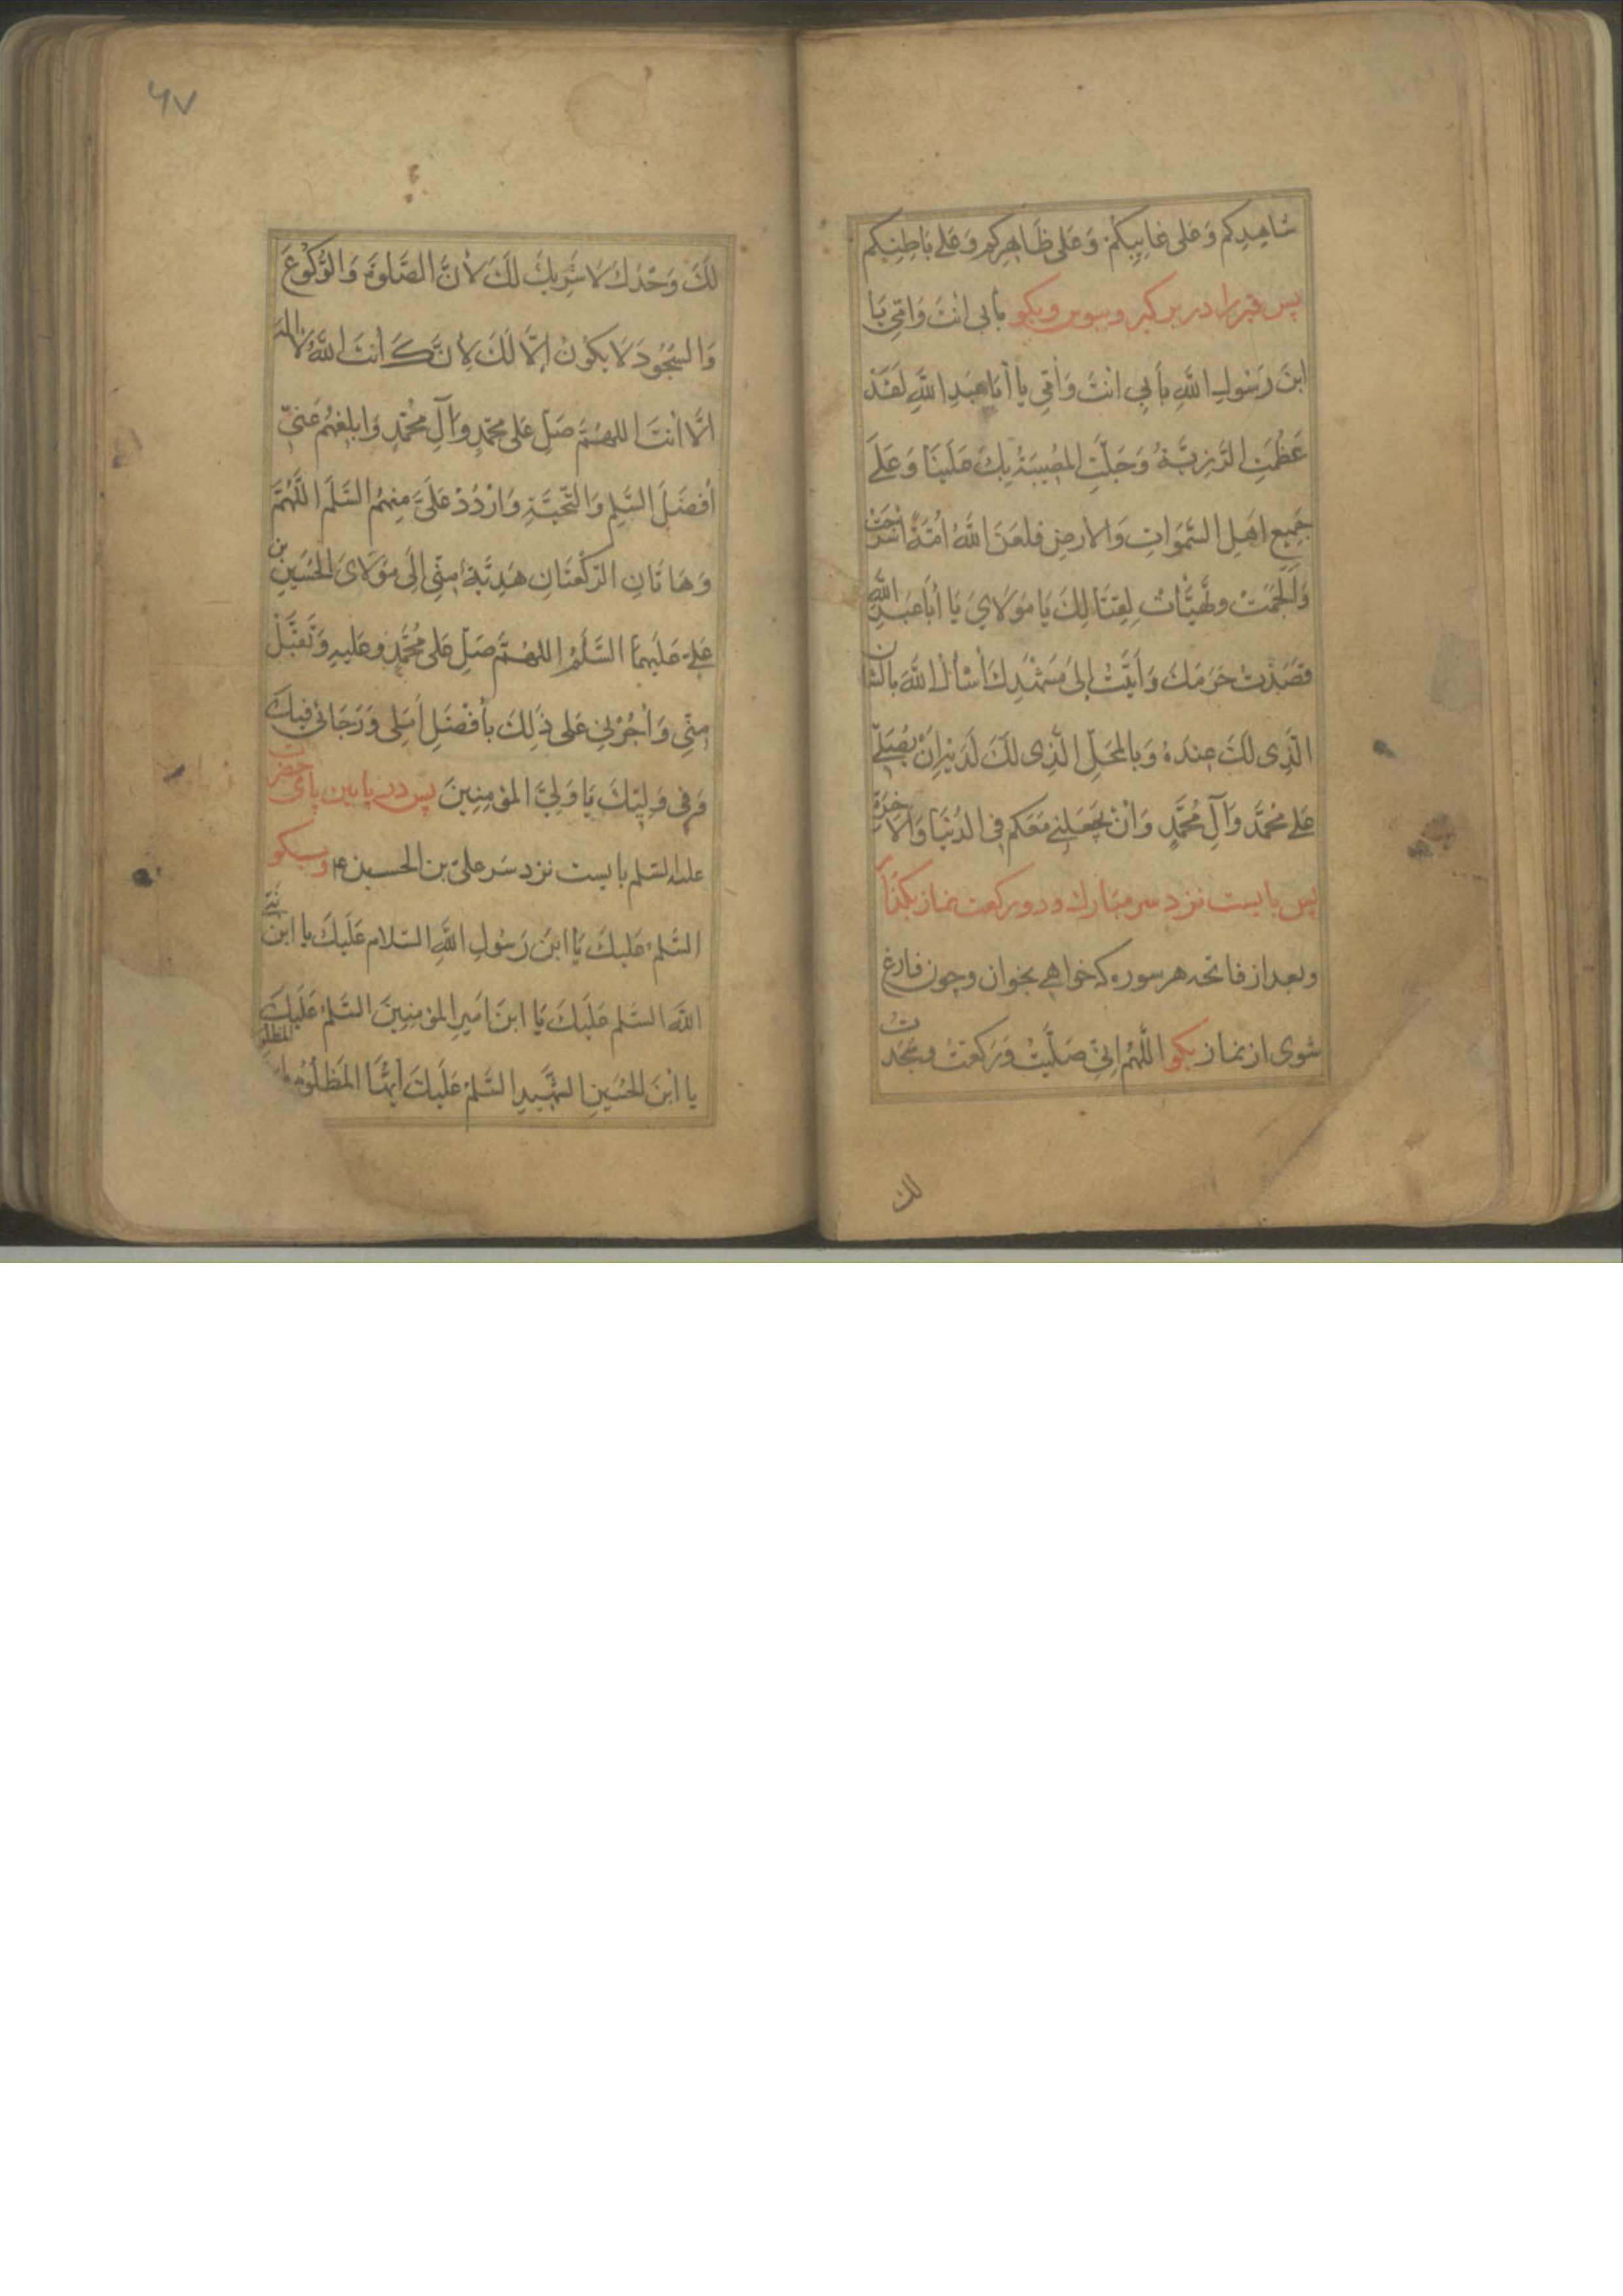 شاهِدِكم وَعَلى غايِبِكمْ وَعَلى ظَاهِرِكم وَعَلے بَاطِنِكم
پس قبر را در بر كير و ببوس و بكو بأبى انْتَ وَامّى يَا
ابنَ رَسُولِ اللَّهِ بأَبِي انْتَ وَاُمّى يا أبَا عَبدِ اللَّهِ لَقَدْ
عَظُمَتِ الرَّزِيَّةُ وَجَلَّتِ المُصِيبَةُ بِكَ عَلَينَا وَعَلَے
جَمِيعِ اهَلِ السَّمَواتِ وَالارضِ فلعَنَ اللَّهُ اُمَّةً اسْرَجَتْ
وَألجَمَتْ وتَهيَّأتْ لِقِتَالِكَ يَا مَولَايَ يَا أبَا عَبدِ اللَّهِ
قصَدْت حَرَمَكَ وَأتَيْتُ إلىَ مَشهَدِكَ أَسْأَلُ اللَّهَ بالشان
الّذِى لَكَ عِندَهُ وَبالمحَلِّ الَّذِى لَكَ لَدَيْهِ انْ يُصَلِّےَ
عَلے مُحَمَّد وَآلِ مُحَمَّدٍ وَانْ يَجعَلَنِے مَعَكم فِى الدُنْيَا وَالآخِرَةِ
پس بايست نزد سر مبارك و دو ركعت نماز بكذار
وبعد از فاتحه هر سوره كه خواهے بخوان و چون فارغ
شوى از نماز بكو اللَّهُمَّ اِنِّى صَلَّيْتُ وَرَكَعْتُ وسَجَدتُ
لك
۶۷
لَكَ وَحْدَكَ لَا شَرِيكَ لَكَ لأنَّ الصَّلوةَ وَالرُّكُوْعَ
وَالسُّجُودَ لَا يَكونُ إلَّا لَكَ لِأنَّكَ أنتَ اللَّهُ لَا اله
الَّا انتَ اللهُمَّ صَلِّ عَلى محَمَّدٍ وَآلِ محُمَّدٍ وَابلِغهُم عَنِّى
أفضَلَ السَّلمِ وَالتَّحيَّةِ وَارْدُدْ عَلَيَّ مِنهُم السَّلَمَ اللَّهُمَّ
وَهَاتَانِ الرَّكْعَتَانِ هَدِيَّةٌ مِنِّى إلَى مَوْلَاىَ الحُسَينِ بن
عَلِےّ عَلَيهِمَا السَّلَمُ اللهُمَّ صَلِّ عَلى مُحَمَّدٍ وعَليهِ وَتَقَبَّلْ
مِنِّى وَأجُرْنِى عَلى ذٰلِكَ بأفْضَلِ أمَلِى وَرَجَائى فِيكَ
وَفِى وَلِيِّكَ يَا وَلِىَّ المؤمِنِينَ پس در پايين پاى حضرت
عليه السلم بايست نزد سَر على بن الحسين ع وبكو
السَّلمُ عَليكَ يَا ابنَ رَسُولِ اللَّهِ السّلام عَلَيكَ يا ابنَ نَبِىِّ
اللَّه السَّلم عَلَيكَ يَا ابنَ امَيرِ المؤمِنِينَ السَّلمُ عَلَيكَ
يا ابْنَ الحُسَينِ الشَّهِيدِ السَّلمُ عَلَيكَ أيهَّا المَظلُومُ